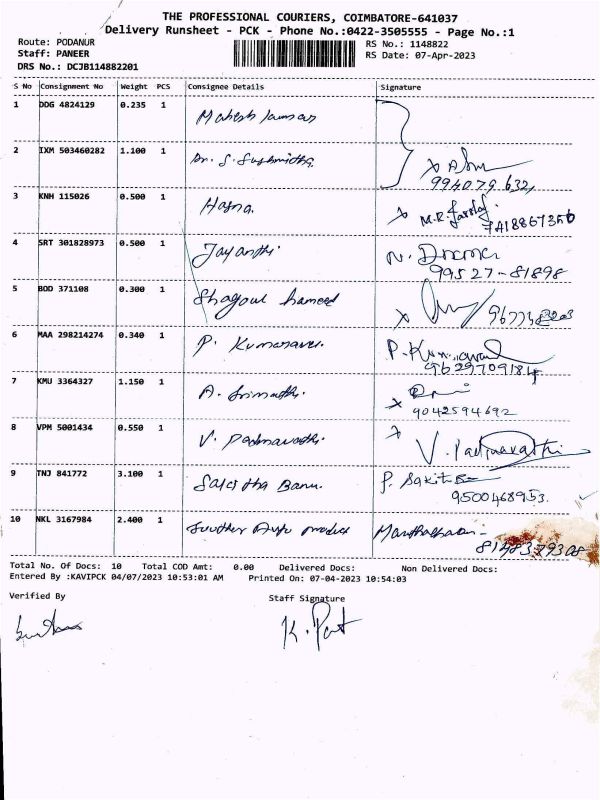 THE PROFESSIONAL COURIERS, COIMBATORE-641037
Delivery Runsheet - PCK - Phone No.:0422-3505555 - Page No.:1
Route: PODANUR RS No.: 1148822
Staff: PANEER RS Date: 07-Apr-2023
DRS No.: DCJB114882201
S No Consignment No Weight PCS Consignee Details Signature
1 DDG 4824129 0.235 1 Mahesh
2 IXM 503460282 1.100 1 Dr. S. Sushmitha
994079 632
3 KNH 115026 0.500 1 Hasna. M.R.
7418867356
4 SRT 301828973 0.500 1 Jayanthi N.
99527-81898
5 BOD 371108 0.300 1 Shagoul hameed
6 MAA 298214274 0.340 1 P. P.
9629709184
7 KMU 3364327 1.150 1 A. Srimathi.
9042594692
8 VPM 5001434 0.550 1 V. Padmavathi. V. Padmavathi
9 TNJ 841772 3.100 1 Banu.
9500468953.
10 NKL 3167984 2.400 1
8148379308
Total No. Of Docs: 10 Total COD Amt: 0.00 Delivered Docs: Non Delivered Docs:
Entered By :KAVIPCK 04/07/2023 10:53:01 AM Printed On: 07-04-2023 10:54:03
Verified By Staff Signature
K.